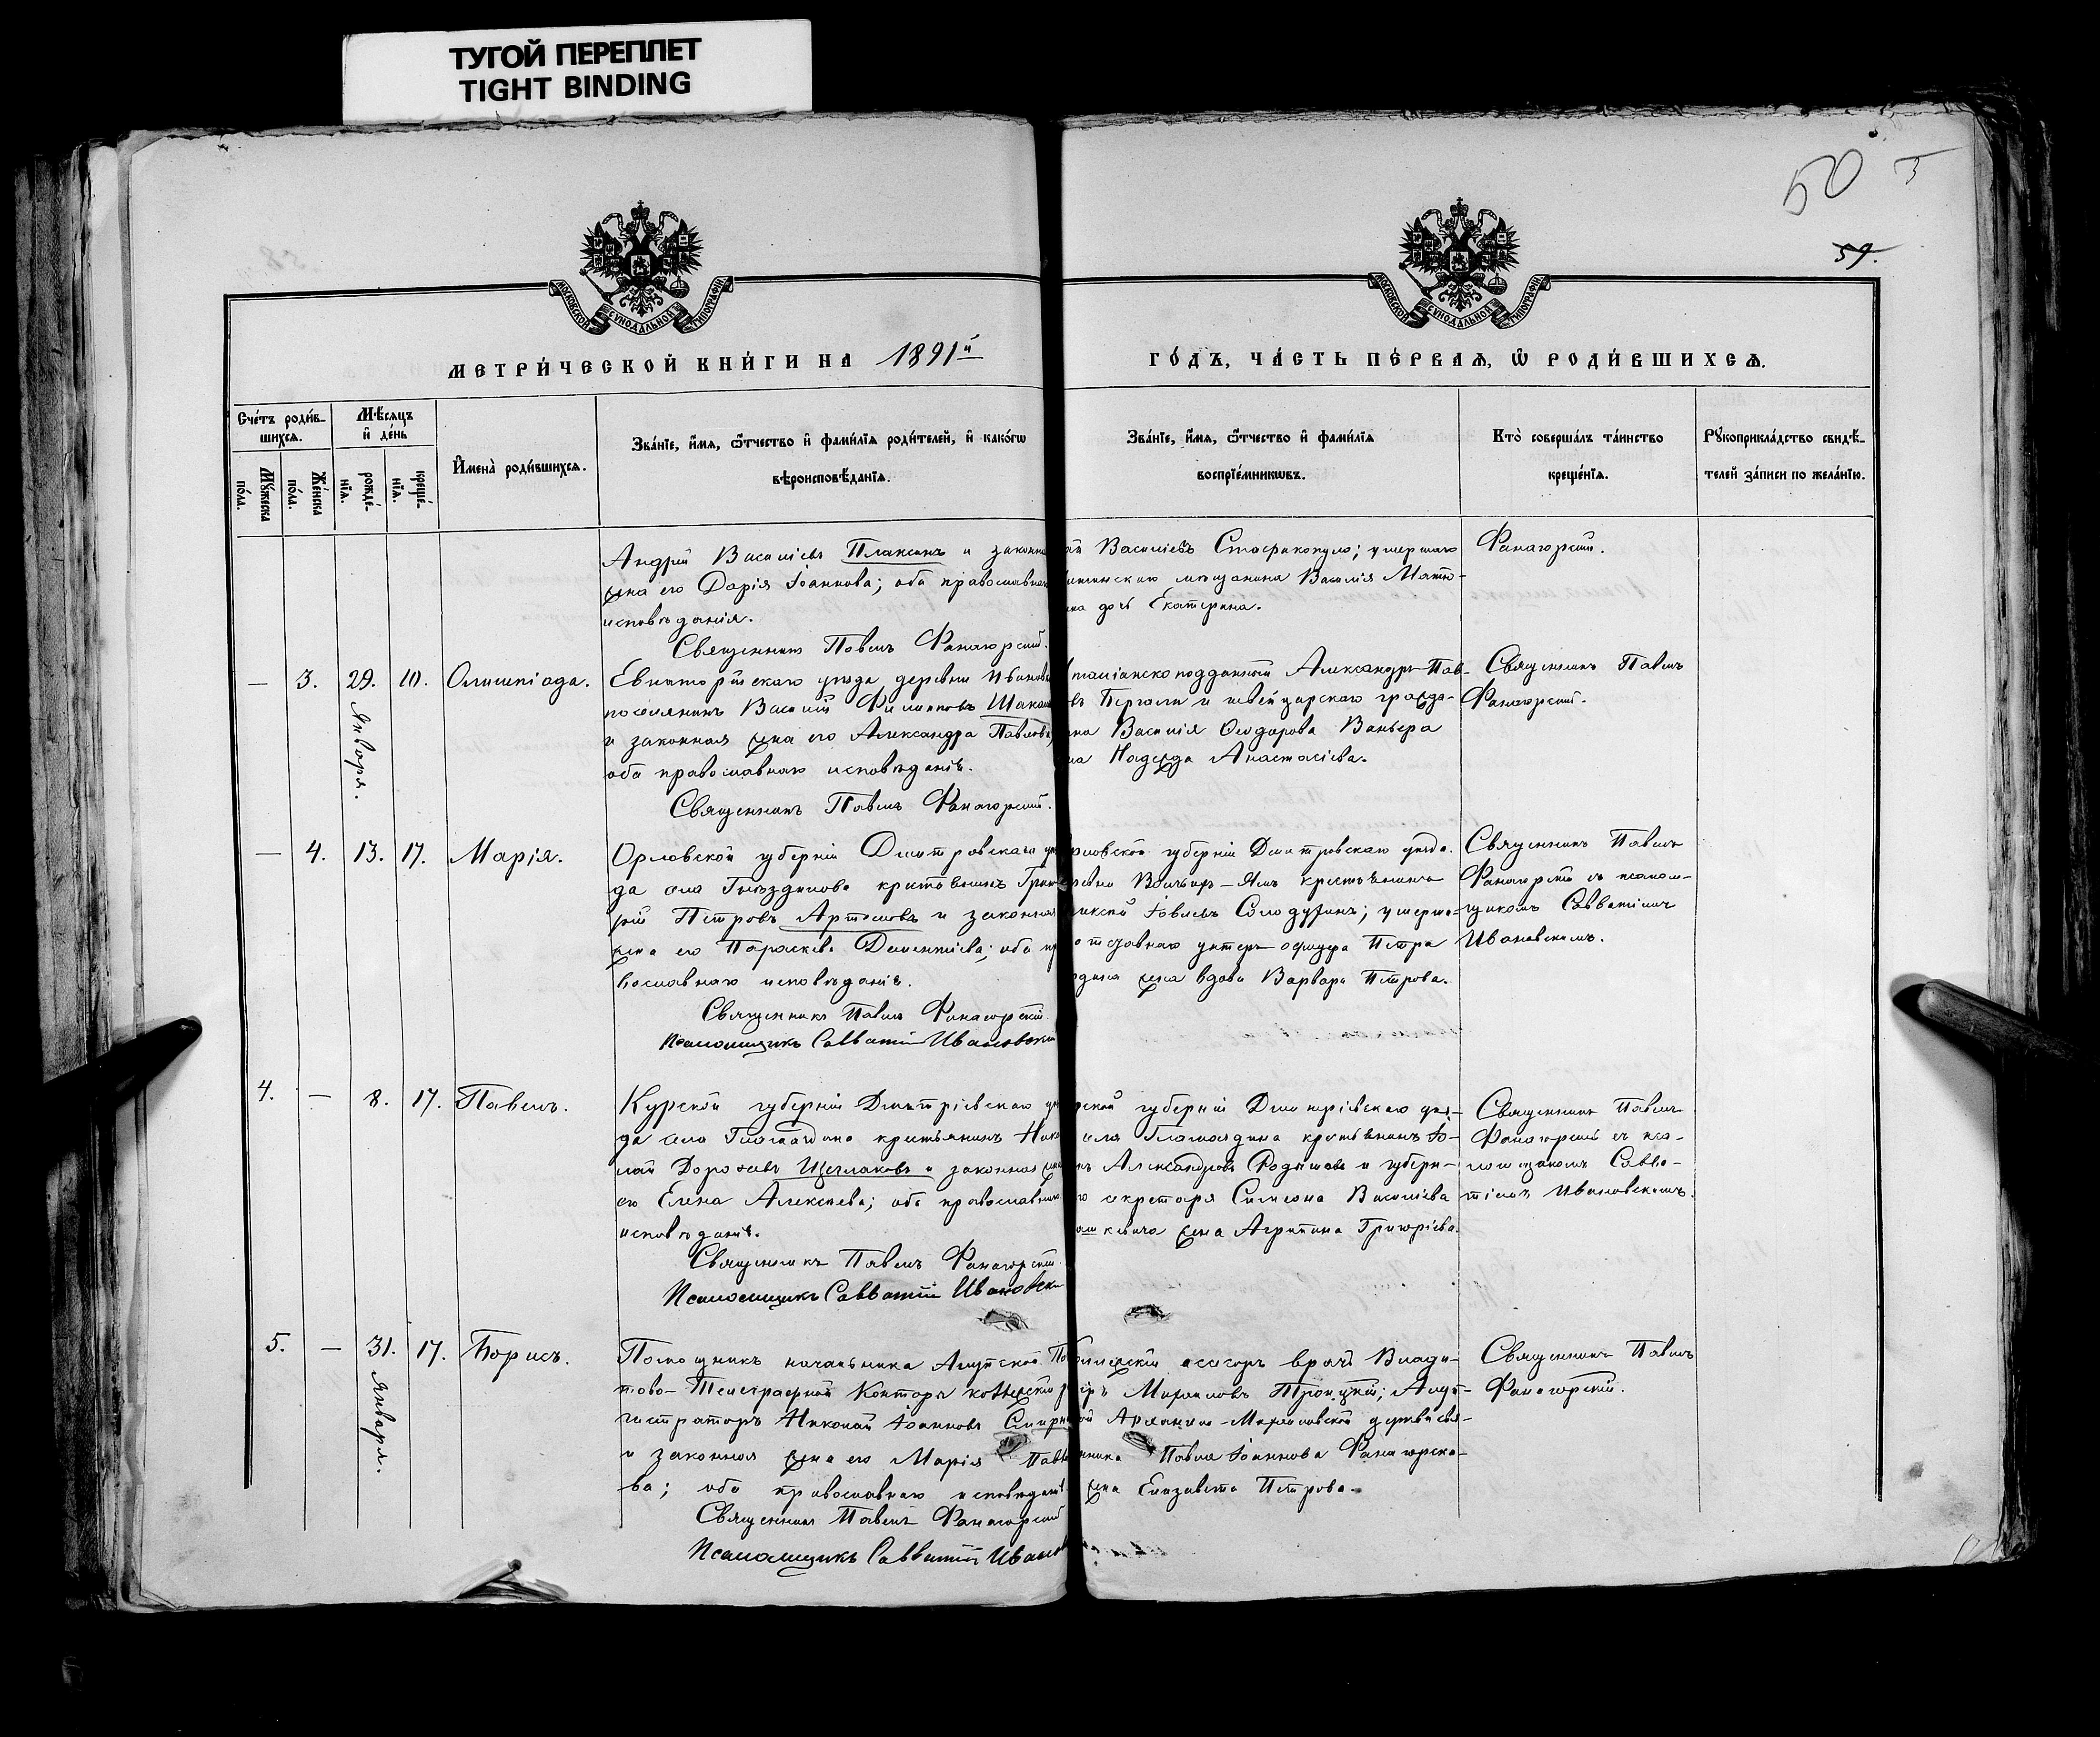 ТУГОЙ ПЕРЕПЛЕТ
TIGHT BINDING
50
59.
МОСКОВСКОЙ СѴНОДАЛЬНОЙ ТИПОГРАФІИ
МОСКОВСКОЙ СѴНОДАЛЬНОЙ ТИПОГРАФІИ
МЕТРИ́ЧЕСКОЙ КНИ́ГИ НА 1891й
ГО́ДЪ, ЧА́СТЬ ПЕ́РВАѦ, Ѽ РОДИ́ВШИХСѦ.
Сче́тъ роди́в-
шихсѧ.
Мѣ́сѧцъ
и҆ де́нь
Мꙋ́жеска
по́ла.
Же́нска
по́ла.
рожде́-
нїѧ.
креще́-
нїѧ.
И҆мена̀ роди́вшихсѧ.
Зва́нїе, и҆́мѧ, ѻ҆́тчество и҆ фами́лїѧ роди́телей, и҆ како́гѡ
вѣроисповѣ́данїѧ.
Зва́нїе, и҆́мѧ, ѻ҆́тчество и҆ фами́лїѧ
воспрїе́мникѡвъ.
Кто̀ соверша́лъ та́инство
креще́нїѧ.
Рꙋкоприкла́дство свидѣ́-
телей за́писи по жела́нїю.
Андрей Васильевъ Плаксинъ и законна
жена его Дарія Іоаннова; оба православнаго
исповѣданія.
Священникъ Павелъ Фанагорскій.
Василіевъ Стафикопуло; умершаго
мѣщанина Василія Матю-
дочь Екатерина.
Фанагорскій.
— 3. 29. 10. Олимпіада.
Января.
Евпаторійскаго уѣзда деревни
поселянинъ Василій Филиповъ
и законная жена его Александра Павлова,
оба православнаго исповѣданія.
Священникъ Павелъ Фанагорскій.
Александръ Пав-
въ Перголи и швейцарскаго гражда-
на Василія Ѳеодорова Ваньера
на Надежда Анастасіева.
Священникъ Павелъ
Фанагорскій.
— 4. 13. 17. Марія.
Орловской губерніи Дмитровскаго уѣ
да села Гнѣздилова крестьянинъ Григо
рій Петровъ Артемовъ и законная
жена его Параскева Дементіева; оба пр
вославнаго исповѣданія.
Священникъ Павелъ Фанагорскій.
Псаломщикъ Савватій Ивановскій
рловской губерніи Дмитровскаго уѣзда
крестьянинъ
Іовлевъ Солодухинъ; умерша-
отставнаго унтеръ-офицера Петра
жена вдова Варвара Петрова.
Священникъ Павелъ
Фанагорскій съ псалом-
щикомъ Савватіемъ
Ивановскимъ.
4. — 8. 17. Павелъ.
Курской губерніи Дмитріевскаго уѣ
да села крестьянинъ Нико
лай Дорофеевъ и законная жена
его Елена Алексѣева; оба православнаго
исповѣданія.
Священникъ Павелъ Фанагорскій
Псаломщикъ Савватій Ивановски
рской губерніи Дмитріевскаго уѣз-
села крестьянинъ Іо-
нъ Александровъ и губерн-
секретаря Симеона Василіева
жена Агрипина Григоріева.
Священникъ Павелъ
Фанагорскій съ пса-
ломщикомъ Савва-
тіемъ Ивановскимъ.
5. — 31. 17. Борисъ.
Января.
Помощникъ начальника Алупкской По
тово-Телеграфной Конторы коллежскій ре
гистраторъ Николай Іоанновъ Смирн
и законная жена его Марія Павло
ва; оба православнаго исповѣданія
Священникъ Павелъ Фанагорскій
Псаломщикъ Савватій Иванов
асесоръ врачъ Влади-
міръ Михаиловъ Троицкій; Алуп-
ской Архангело-Михайловской церкви свя-
щенника Павла Іоаннова Фанагорска-
жена Елизавета Петрова.
Священникъ Павелъ
Фанагорскій.